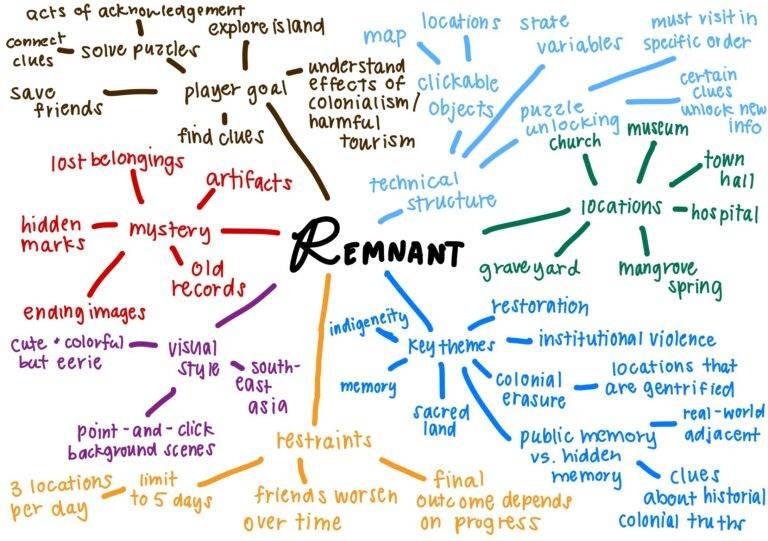 acts of acknowledgement
connect
clues
solve puzzles
explore island
save
friends
player goal
find clues
understand
effects of
colonialism/
harmful
tourism
map
locations
clickable
objects
state
variables
must visit in
specific order
puzzle
unlocking
certain
clues
unlock new
info
technical
structure
church
museum
town
hall
locations
hospital
graveyard
mangrove
spring
lost belongings
artifacts
hidden
marks
mystery
old
records
ending images
REMNANT
cute + colorful
but eerie
visual
style
south-
east
asia
point-and-click
background scenes
indigeneity
key themes
restoration
institutional violence
memory
sacred
land
colonial
erasure
locations that
are gentrified
public memory
vs. hidden
memory
real-world
adjacent
clues
about historial
colonial truths
restraints
3 locations
per day
limit
to 5 days
friends worsen
over time
final
outcome depends
on progress